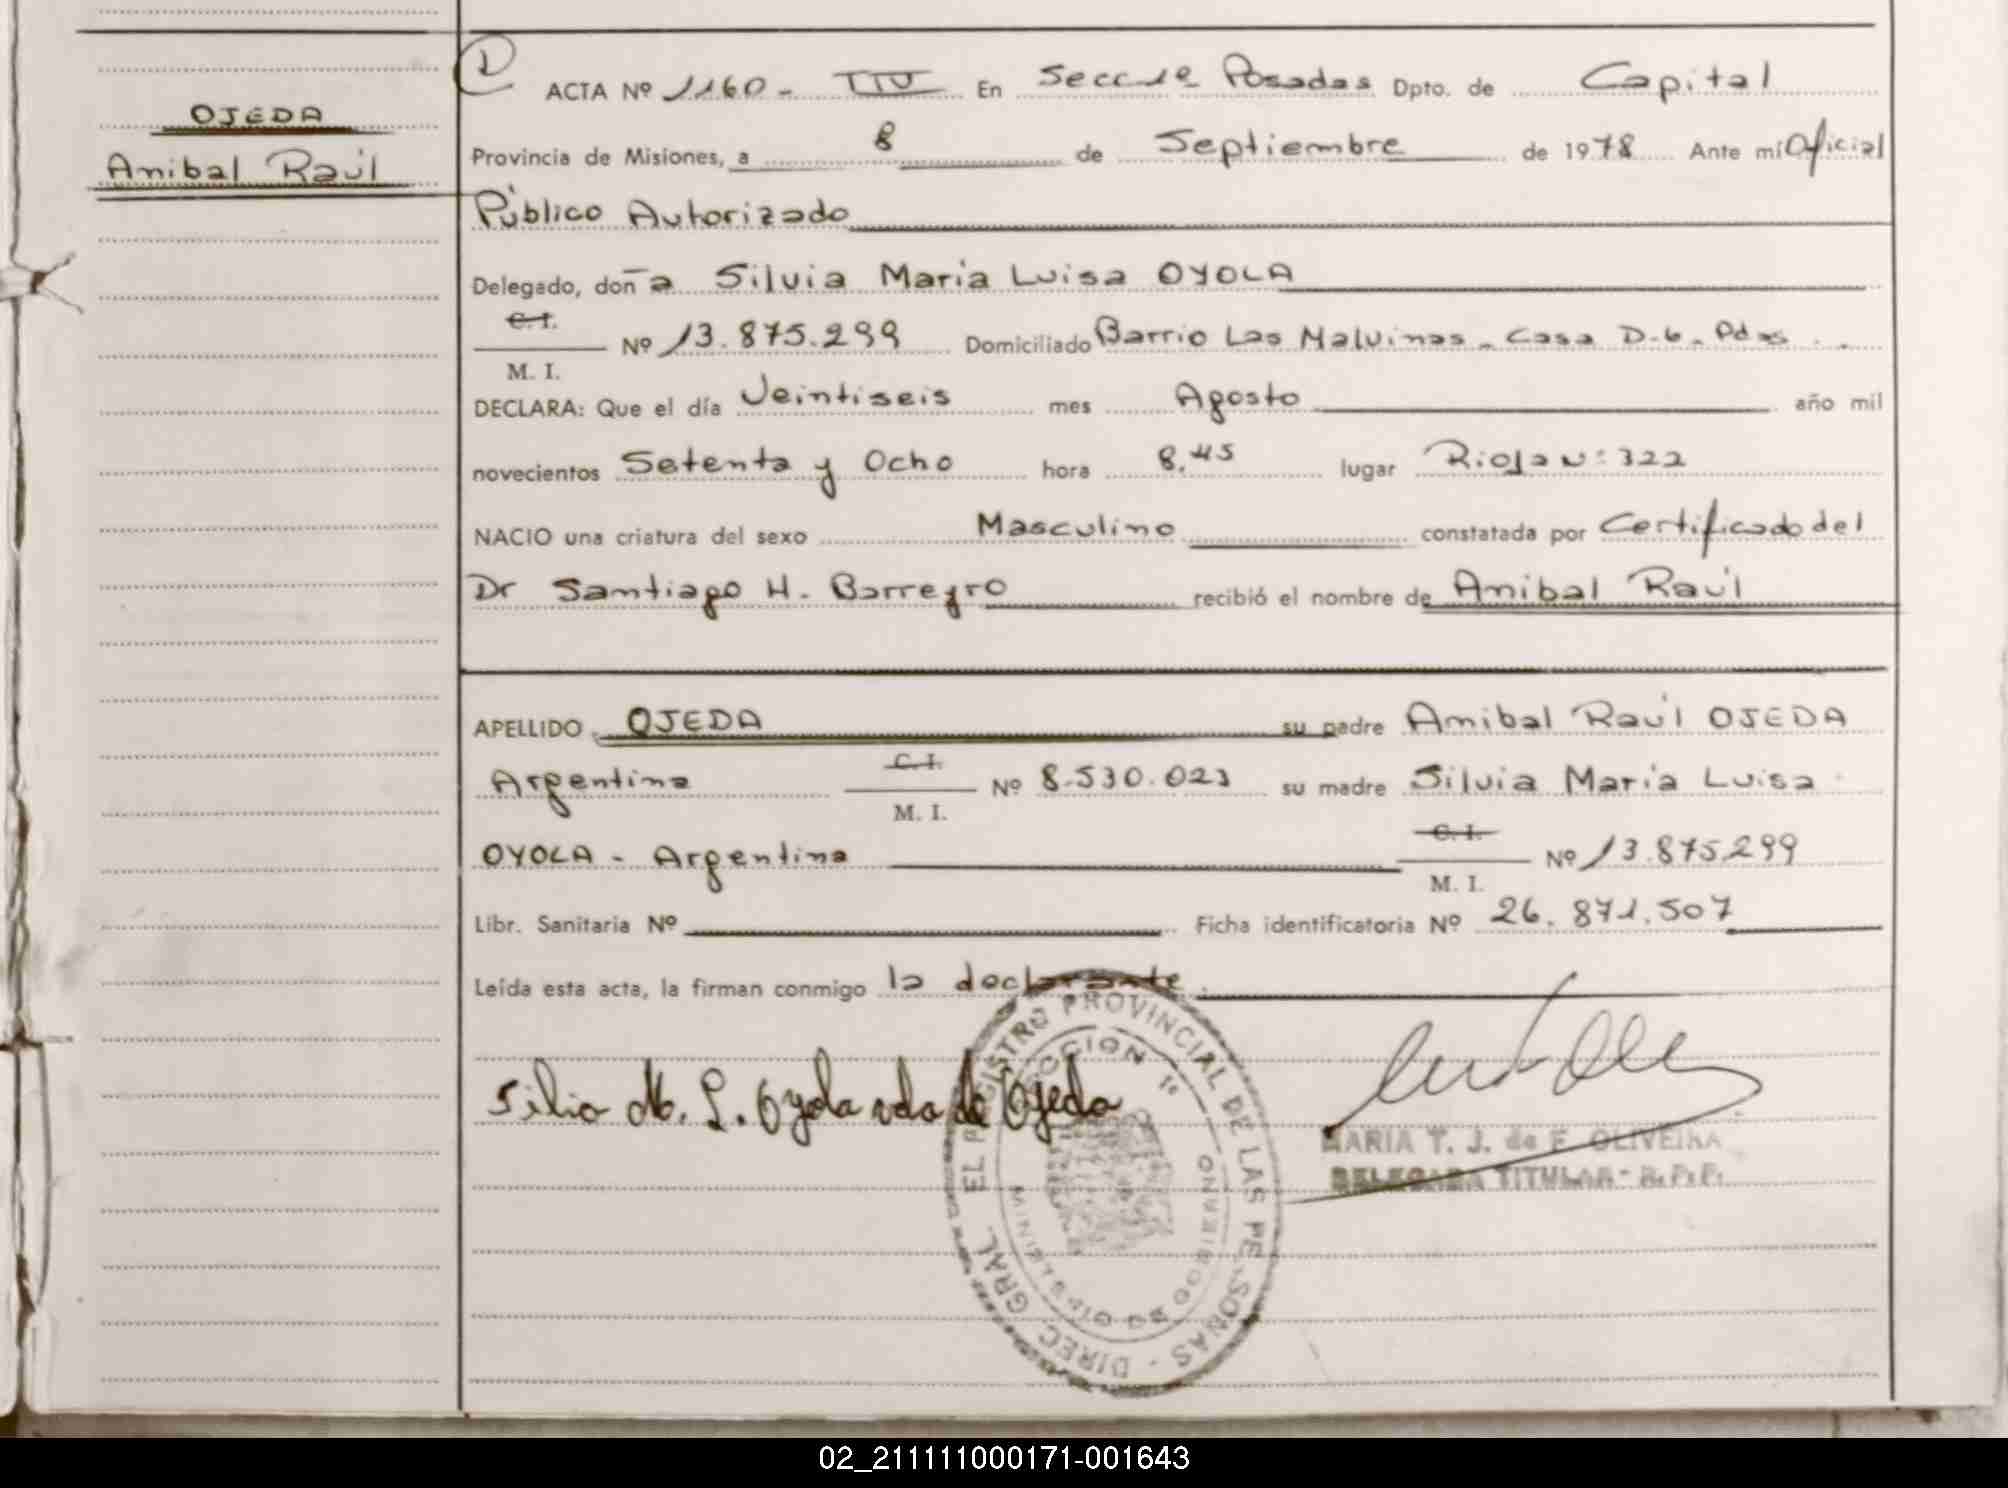 OJEDA
Anibal Raúl
1
ACTA Nº 1160 - TIV En Secc 1ª Posadas Dpto. de Capital
Provincia de Misiones, a 8 de Septiembre de 1978 Ante mi Oficial
Público Autorizado
Delegado, doña Silvia Maria Luisa OYOLA
C.I.
M. I. Nº 13.875.299 Domiciliado Barrio Las Malvinas - Casa D-6 - Pdas
DECLARA: Que el día Veintiseis mes Agosto año mil
novecientos Setenta y Ocho hora 8,45 lugar Rioja Nº 322
NACIO una criatura del sexo Masculino constatada por Certificado del
Dr Santiago H. Barreyro recibió el nombre de Anibal Raúl
APELLIDO OJEDA su padre Anibal Raúl OJEDA
Argentina C.I. M. I. Nº 8.530.023 su madre Silvia Maria Luisa
OYOLA - Argentina C.I. M. I. Nº 13.875.299
Libr. Sanitaria Nº Ficha identificatoria Nº 26.871.507
Leída esta acta, la firman conmigo la declarante
Silvia M. L. Oyola de Ojeda
DIREC GRAL EL REGISTRO PROVINCIAL DE LAS PERSONAS -
SECCION 1ª
MINISTERIO DE GOBIERNO
MARIA T. J. de F. OLIVEIRA
DELEGADA TITULAR - R.P.P.
02_211111000171-001643